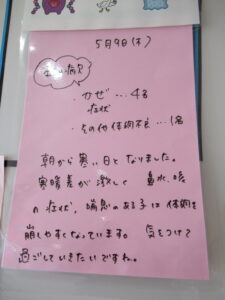 5月9日(木)
・かぜ…4名
症状
・その他体調不良…1名
朝から寒い日となりました。
寒暖差が激しく 鼻水、咳
の症状、喘息のある子は体調を
崩しやすくなっています。 気をつけて
過ごしていきたいですね。